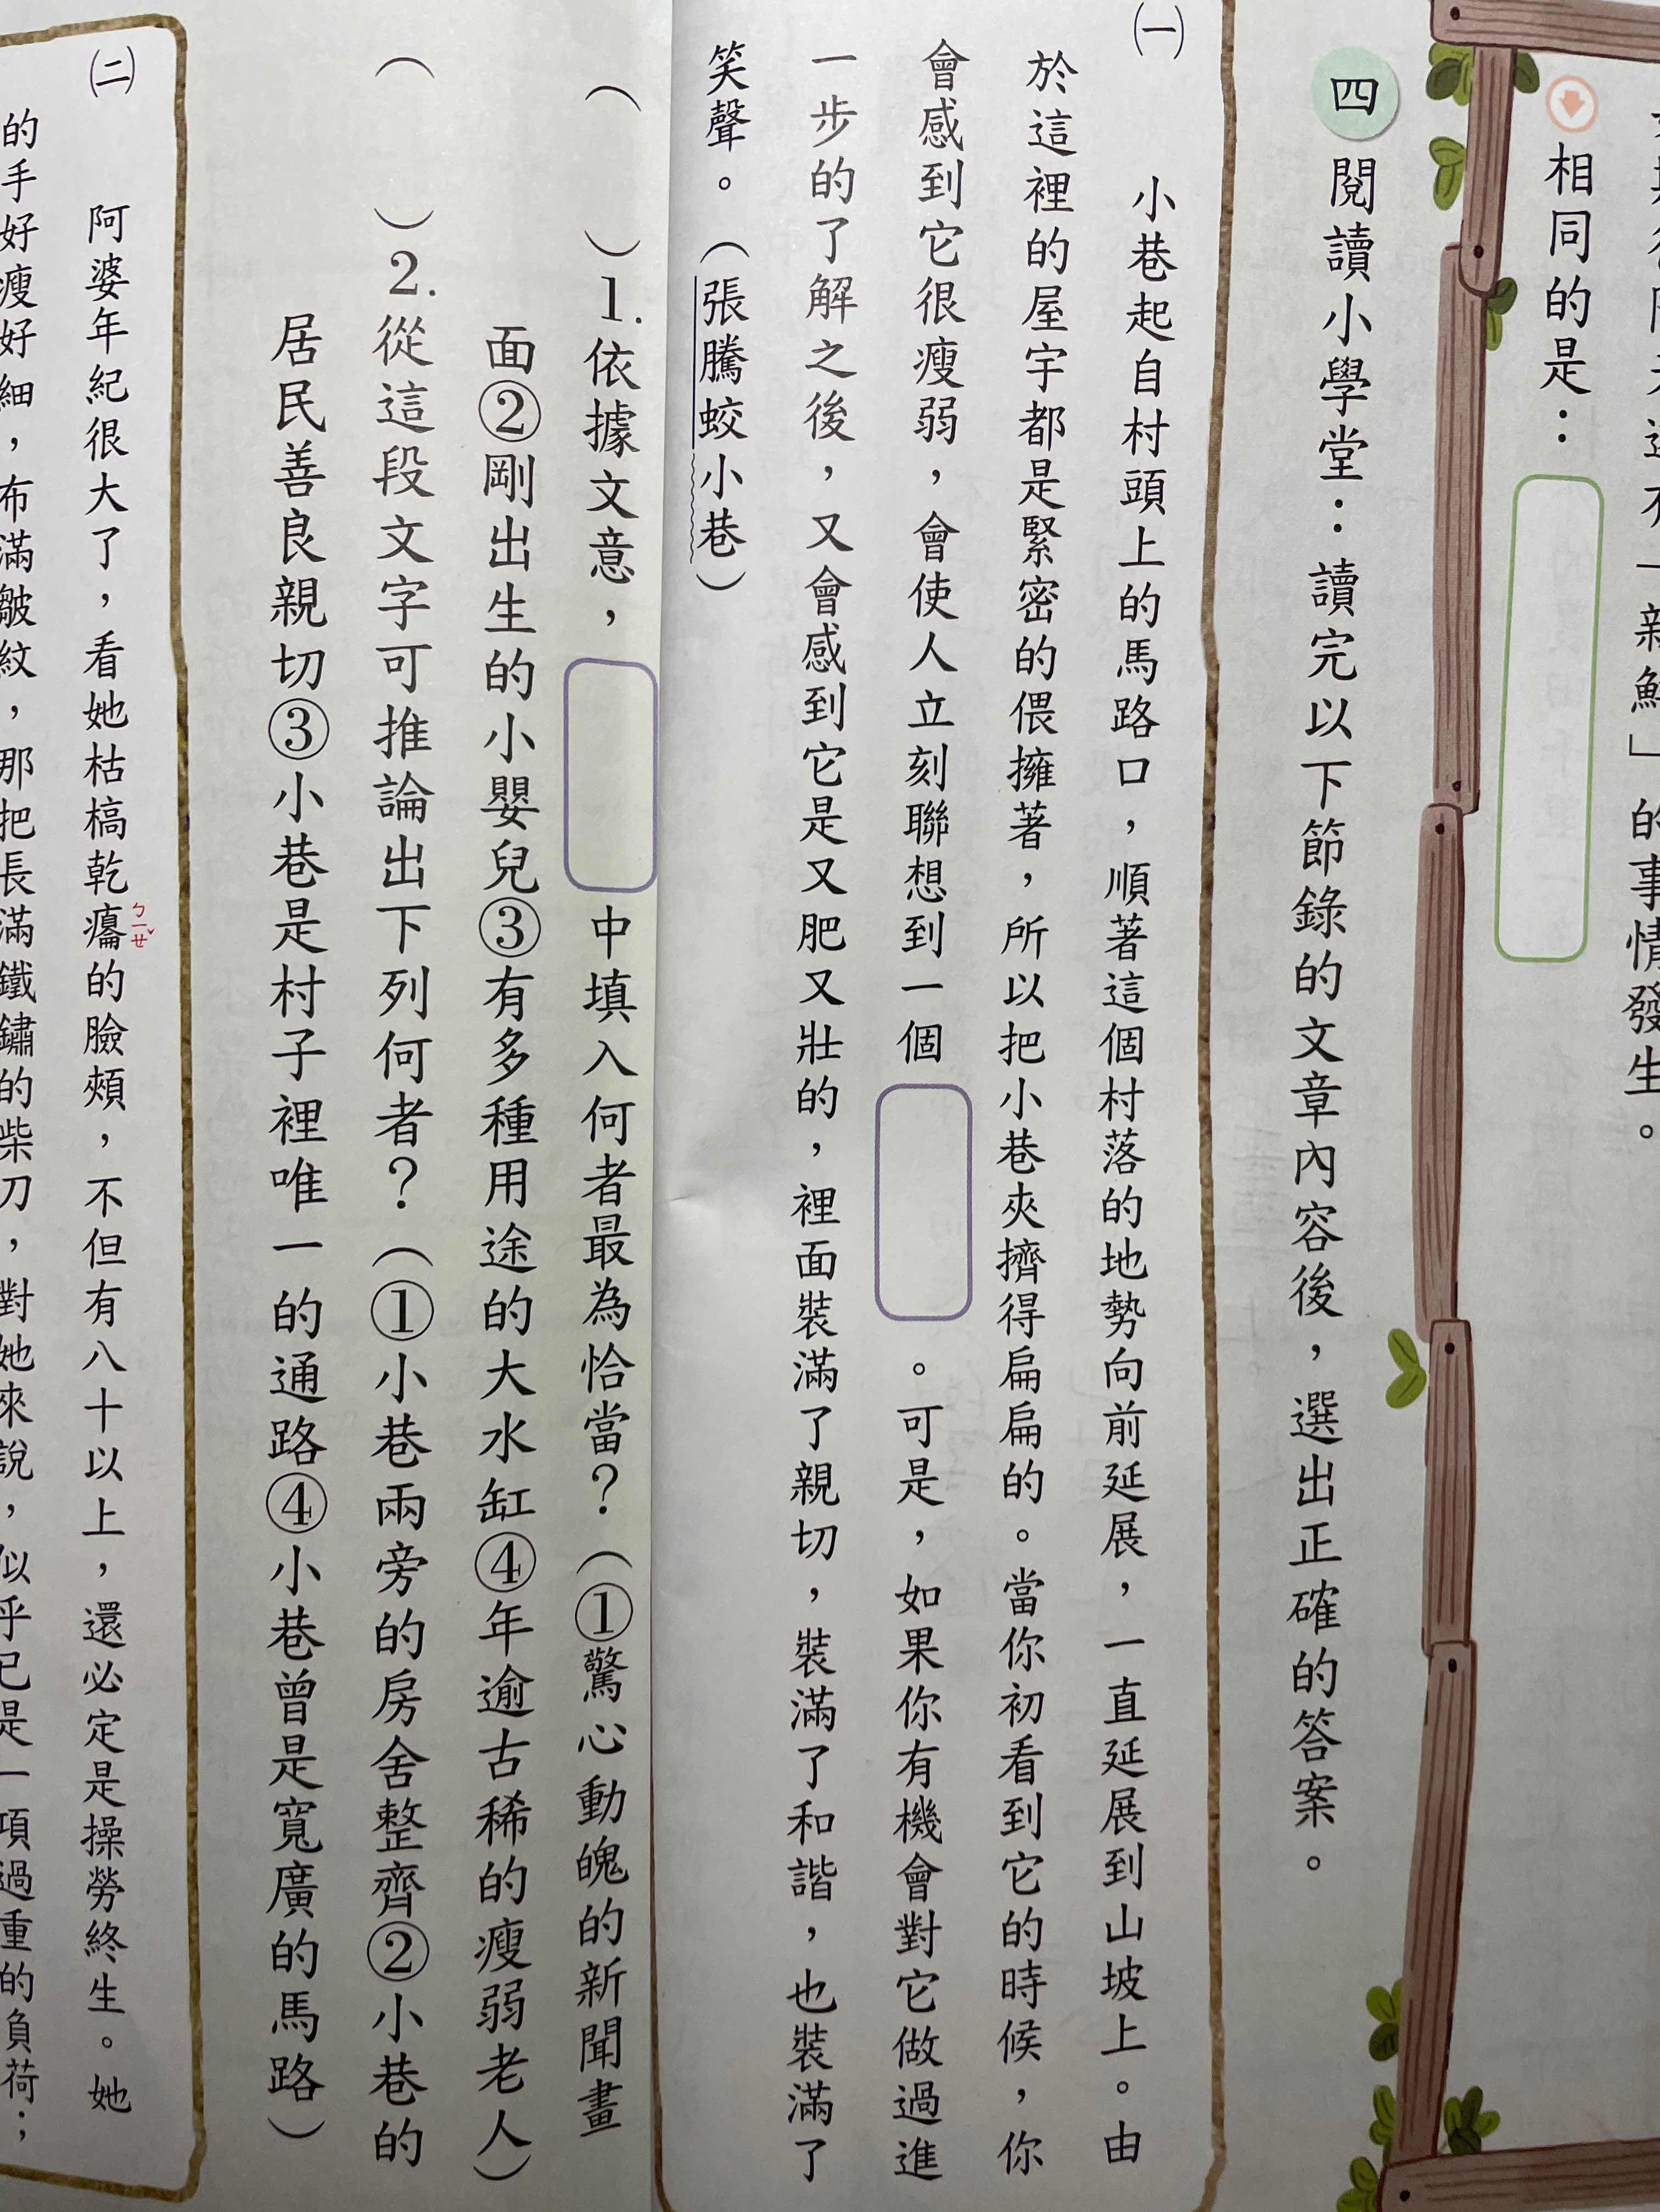 一新鮮」的事情發生。
相同的是：
四 閱讀小學堂：讀完以下節錄的文章內容後，選出正確的答案。
㈠
小巷起自村頭上的馬路口，順著這個村落的地勢向前延展，一直延展到山坡上。由
於這裡的屋宇都是緊密的偎擁著，所以把小巷夾擠得扁扁的。當你初看到它的時候，你
會感到它很瘦弱，會使人立刻聯想到一個。可是，如果你有機會對它做過進
一步的了解之後，又會感到它是又肥又壯的，裡面裝滿了親切，裝滿了和諧，也裝滿了
笑聲。（張騰蛟小巷）
（ ）1.依據文意，中填入何者最為恰當？（①驚心動魄的新聞畫
面②剛出生的小嬰兒③有多種用途的大水缸④年逾古稀的瘦弱老人）
（ ）2.從這段文字可推論出下列何者？（①小巷兩旁的房舍整齊②小巷的
居民善良親切③小巷是村子裡唯一的通路④小巷曾是寬廣的馬路）
㈡
阿婆年紀很大了，看她枯槁乾癟ㄅㄧㄝˇ的臉頰，不但有八十以上，還必定是操勞終生。她
的手好瘦好細，布滿皺紋，那把長滿鐵鏽的柴刀，對她來說，似乎已是一項過重的負荷；